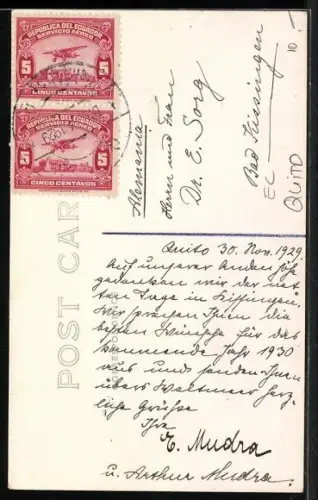 REPUBLICA DEL ECUADOR
SERVICIO AEREO
5 5
CINCO CENTAVOS
REPUBLICA DEL ECUADOR
SERVICIO AEREO
5 5
CINCO CENTAVOS
Alemania
Herrn und Frau
Dr. E. Sorg
Bad Kissingen
EC
QUITO
10
POST CARD
CORRESPONDENCE
Quito 30. Nov. 1929.
Auf unserer Andenhöh
gedenken wir der net-
ten Tage in Kissingen.
Wir sprechen Ihnen die
besten Wünsche für das
kommende Jahr 1930
aus und senden Ihnen
übers Weltmeer herz-
liche Grüße
Ihre
E. Mudra
u. Arthur Mudra.